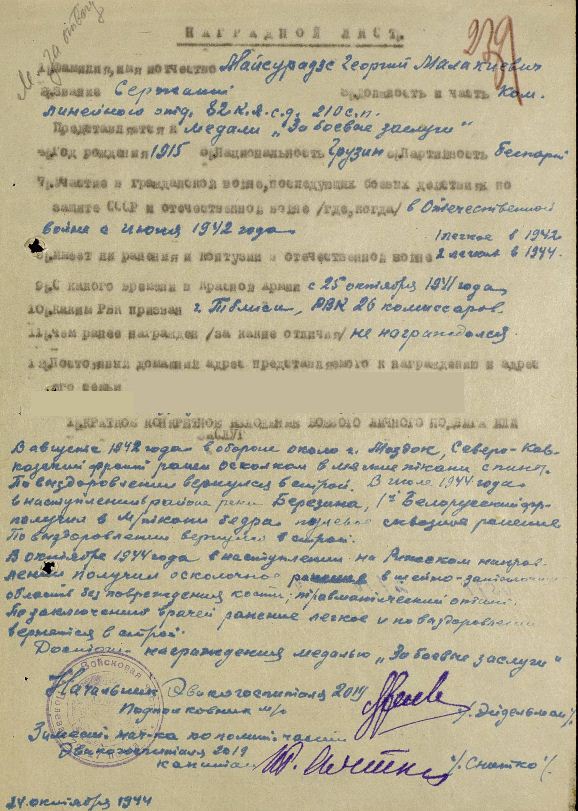 М-за отвагу
279
НАГРАДНОЙ ЛИСТ.
1. Фамилия, имя и отчество Майсурадзе Георгий Малакиевич
2. Звание Сержант 3. Должность и часть Ком.
линейного отд. 82 к.я.с.д. 210 с.п.
Представляется к медали „За боевые заслуги"
4. Год рождения 1915 5. Национальность Грузин 6. Партийность Беспарт
7. Участие в гражданской войне, последующих боевых действиях по
защите СССР и отечественной войне /где, когда/ в Отечественной
войне с июня 1942 года
1 легкое в 1942
8. Имеет ли ранения и контузии в отечественной войне 2 легкое в 1944.
9. С какого времени в Красной Армии с 25 октября 1941 года
10. Каким РВК призван г. Тбилиси, РВК 26 комиссаров.
11. Чем ранее награжден /за какие отличия/ не награждался.
12. Постоянный домашний адрес представляемого к награждению и адрес
его семьи
1. КРАТКОЕ КОНКРЕТНОЕ ИЗЛОЖЕНИЕ БОЕВОГО ЛИЧНОГО ПОДВИГА ИЛИ
ЗАСЛУГ
В августе 1942 года в обороне около г. Моздок, Северо-Кав-
казский фронт ранен осколком в мягкие ткани спины.
По выздоровлении вернулся в строй. В июле 1944 года
в наступлении в районе реки Березина, 1й Белорусский фр.
получил в м/ткани бедра пулевое сквозное ранение
По выздоровлении вернулся в строй.
В октябре 1944 года в наступлении на Рижском направ-
лении получил осколочное ранение в шейно-затылочн
области без повреждения кости; травматический отит.
По заключению врачей ранение легкое и по выздоровлении
вернется в строй.
Достоин награждения медалью „За боевые заслуги"
Начальник Эвакогоспиталя 2019
Подполковник м/с /. Эйдельман/.
Заместит. нач-ка по полит. части
Эвакогоспиталя 2019
капитан /. Снитко /.
Войсковая
24 октября 1944